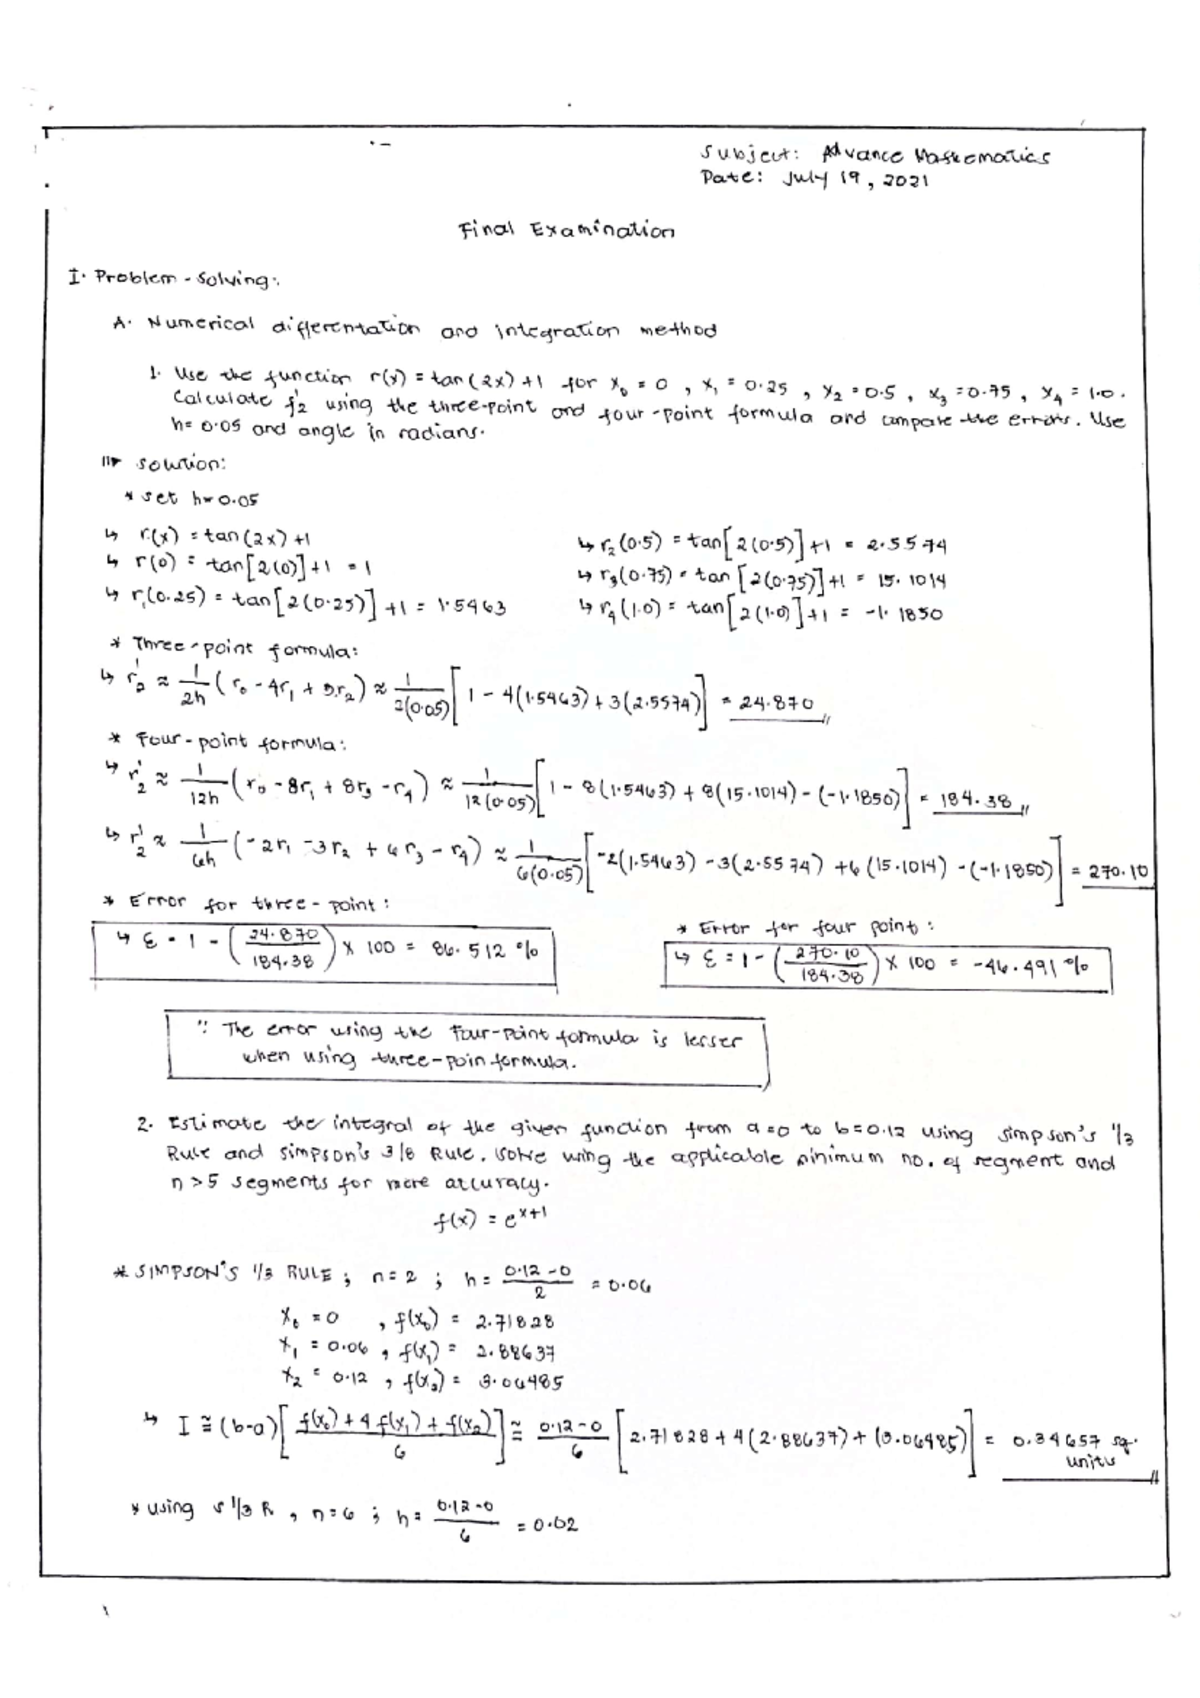 Subject: Advance Mathematics
Date: July 19, 2021
Final Examination
I. Problem-Solving:
A. Numerical differentation and integration method
1. Use the function r(x) = tan(2x)+1 for x₀ = 0, x₁ = 0.25, x₂ = 0.5, x₃ = 0.75, x₄ = 1.0.
Calculate f'2 using the three-point and four-point formula and compare the errors. Use
h= 0.05 and angle in radians.
Solution:
* set h=0.05
↳ r(x) = tan(2x)+1
↳ r(0) = tan[2(0)]+1 = 1
↳ r₁(0.25) = tan[2(0.25)]+1 = 1.5463
↳ r₂(0.5) = tan[2(0.5)]+1 = 2.5574
↳ r₃(0.75) = tan[2(0.75)]+1 = 15.1014
↳ r₄(1.0) = tan[2(1.0)]+1 = -1.1850
* Three-point formula:
↳ r'₂ ≈ 1/2h (r₀ - 4r₁ + 3r₂) ≈ 1/2(0.05) [1 - 4(1.5463) + 3(2.5574)] = 24.870
* Four-point formula:
↳ r'₂ ≈ 1/12h (r₀ - 8r₁ + 8r₃ - r₄) ≈ 1/12(0.05) [1 - 8(1.5463) + 8(15.1014) - (-1.1850)] = 184.38
↳ r'₂ ≈ 1/6h (-2r₁ - 3r₂ + 6r₃ - r₄) ≈ 1/6(0.05) [-2(1.5463) - 3(2.5574) + 6(15.1014) - (-1.1850)] = 270.10
* Error for three-point:
↳ ε = 1 - (24.870/184.38) x 100 = 86.512 %
* Error for four point:
↳ ε = 1 - (270.10/184.38) x 100 = -46.491 %
∵ The error using the Four-point formula is lesser
when using three-poin formula.
2. Estimate the integral of the given function from a=0 to b=0.12 using Simpson's 1/3
Rule and Simpson's 3/8 Rule. Solve using the applicable minimum no. of segment and
n >5 segments for more accuracy.
f(x) = e^x+1
* SIMPSON'S 1/3 RULE ; n=2 ; h= 0.12-0/2 = 0.06
x₀ = 0 , f(x₀) = 2.71828
x₁ = 0.06 , f(x₁) = 2.88637
x₂ = 0.12 , f(x₂) = 3.06485
↳ I ≅ (b-a) [f(x₀)+4 f(x₁) + f(x₂)/6] ≅ 0.12-0/6 [2.71828 + 4(2.88637) + (3.06485)] = 0.34657 sq. units
* using S 1/3 R , n=6 ; h= 0.12-0/6 = 0.02